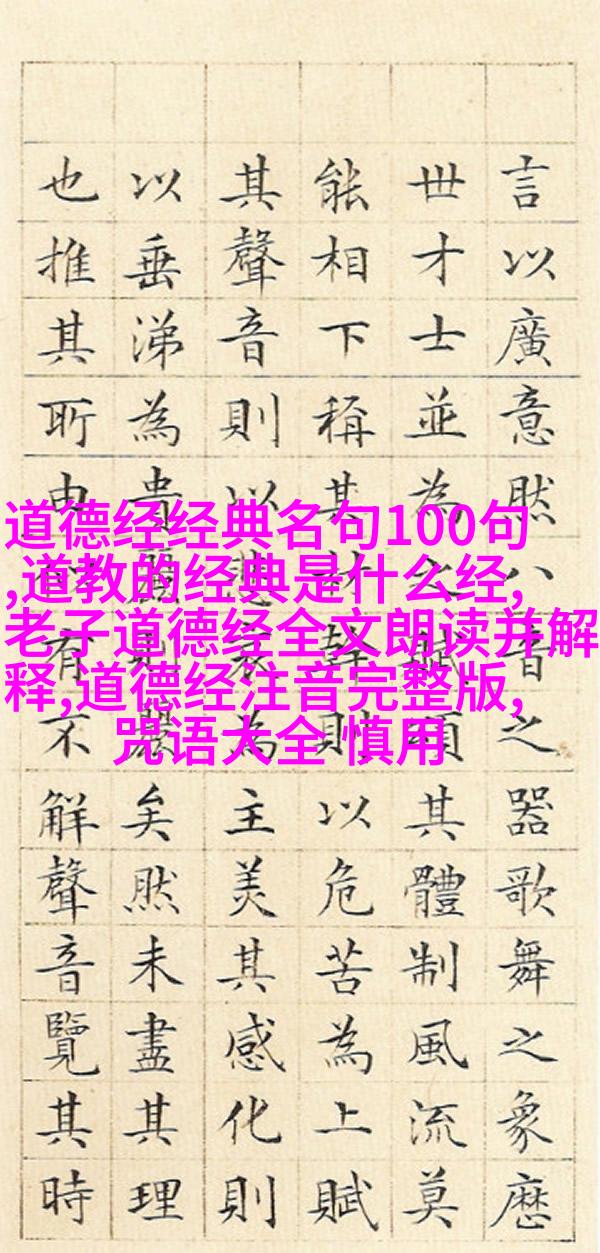 言以廣意然八音之器歌舞之象歷
世才士並為之賦頌其體制風流莫
能相下稱其材幹則以危苦為上賦
其聲音則以悲哀為主美其感化則
以垂涕為貴麗矣然未盡其理
也推其所由有不解聲音覽其時
道德经经典名句100句
,道教的经典是什么经,
老子道德经全文朗读并解
释,道德经注音完整版,
咒语大全 慎用